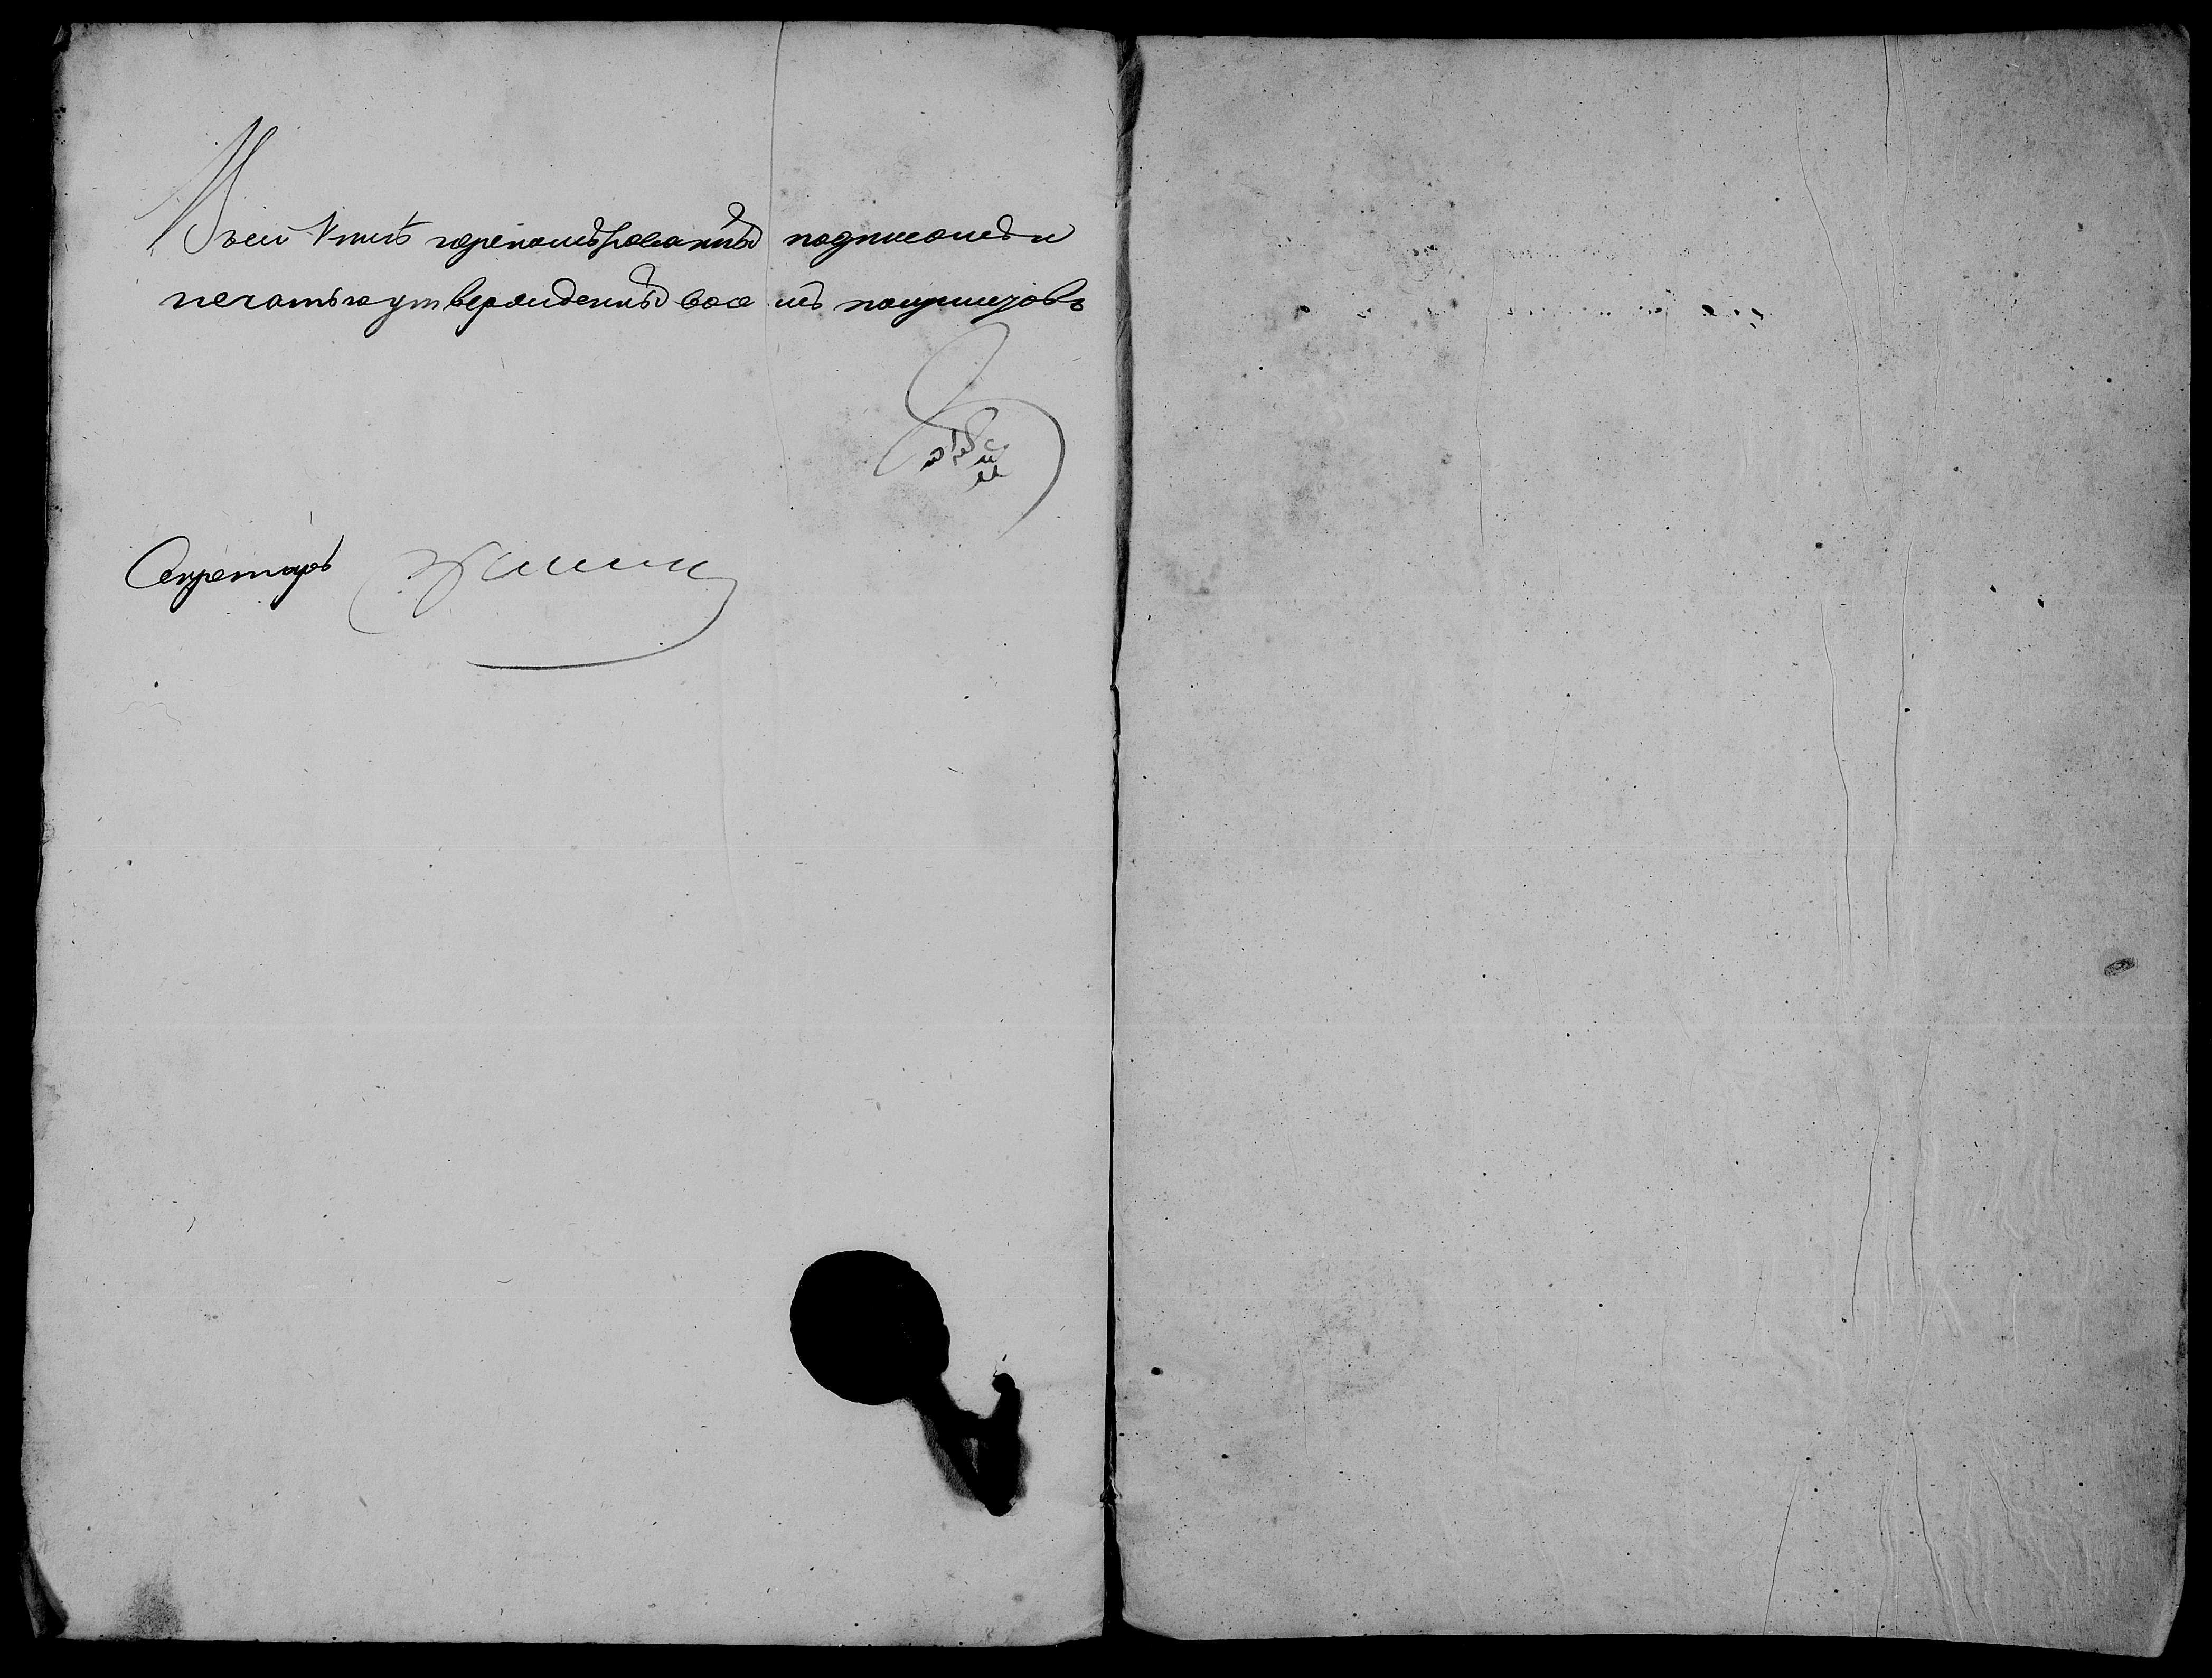 Въ сей книгѣ перенумѣрованныхъ подписомъ и
печатью утвержденныхъ восемь полулистовъ
Секретарь